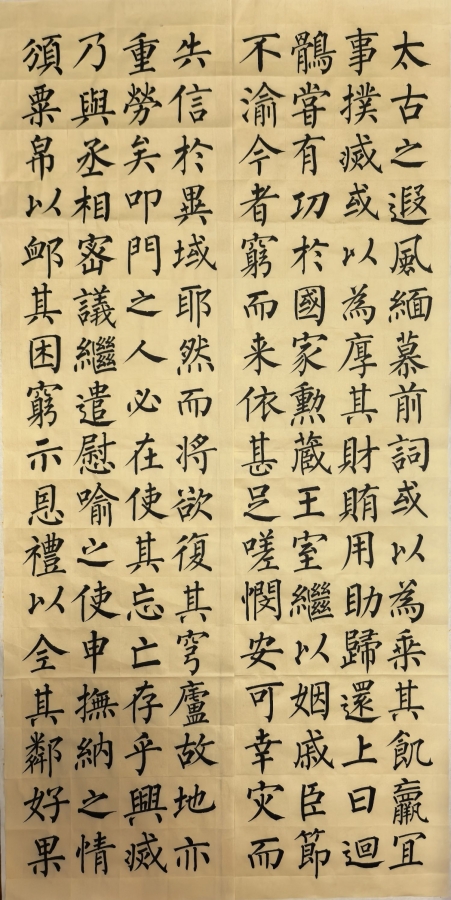 太古之遐風緬慕前詞或以為乘其飢羸宜
事撲滅或以為厚其財賄用助歸還上曰迴
鶻嘗有功於國家勳蔵王室繼以姻戚臣節
不渝今者窮而来依甚足嗟憫安可幸灾而
失信於異域耶然而将欲復其穹廬故地亦
重勞矣叩門之人必在使其忘亡存乎興滅
乃與丞相密議繼遣慰喻之使申撫納之情
頒粟帛以卹其困窮示恩禮以全其鄰好果